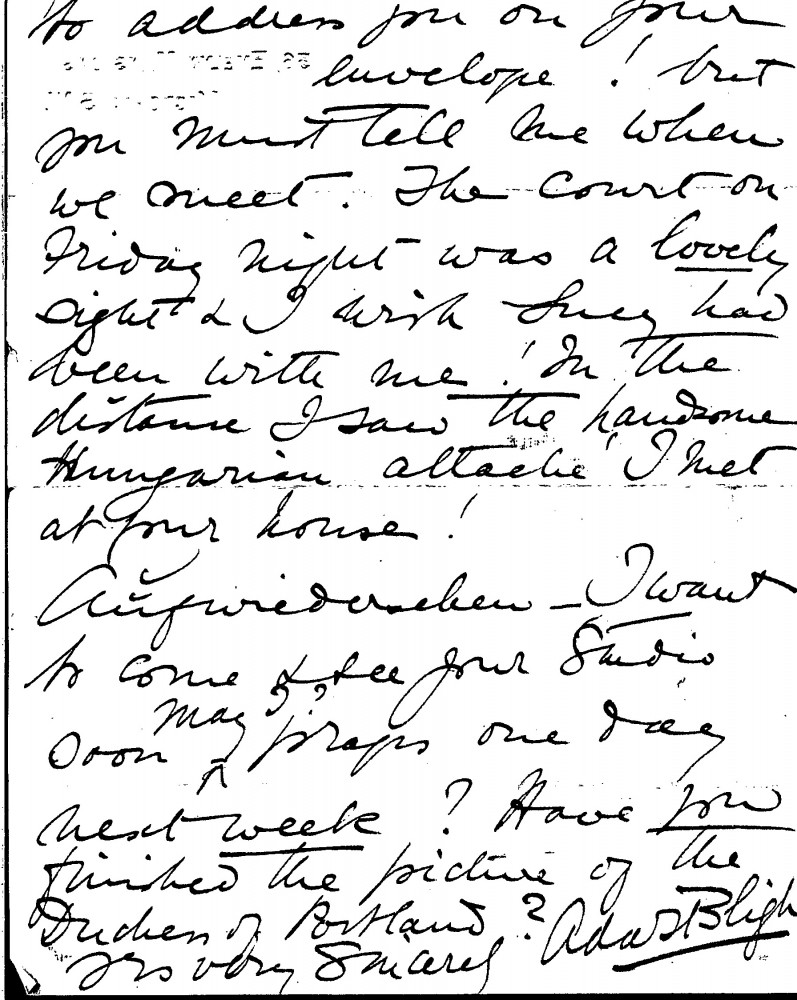 to address you on your
envelope! but
you must tell me when
we meet. The Court on
Friday night was a lovely
sight & I wish Lucy had
been with me! In the
distance I saw the handsome
Hungarian attaché I met
at your house!
Aufwiedersehen – I want
to come & see your Studio
May I?
soon p'raps one day
next week? Have you
finished the picture of the
Duchess of Portland?
Yrs very Sincerely Ada S Bligh